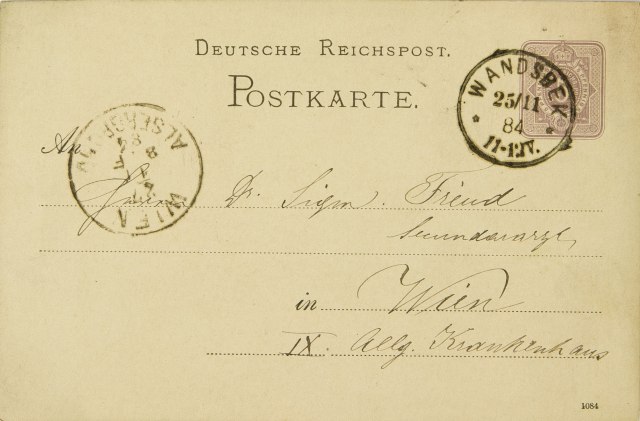 DEUTSCHE REICHSPOST.
POSTKARTE.
WANDSBEK
25/11
84
11-12V.
WIEN
ALSERGRUND
An
Herrn Dr. Sigm. Freud
Secundararzt,
in Wien
IX. Allg. Krankenhaus
1084